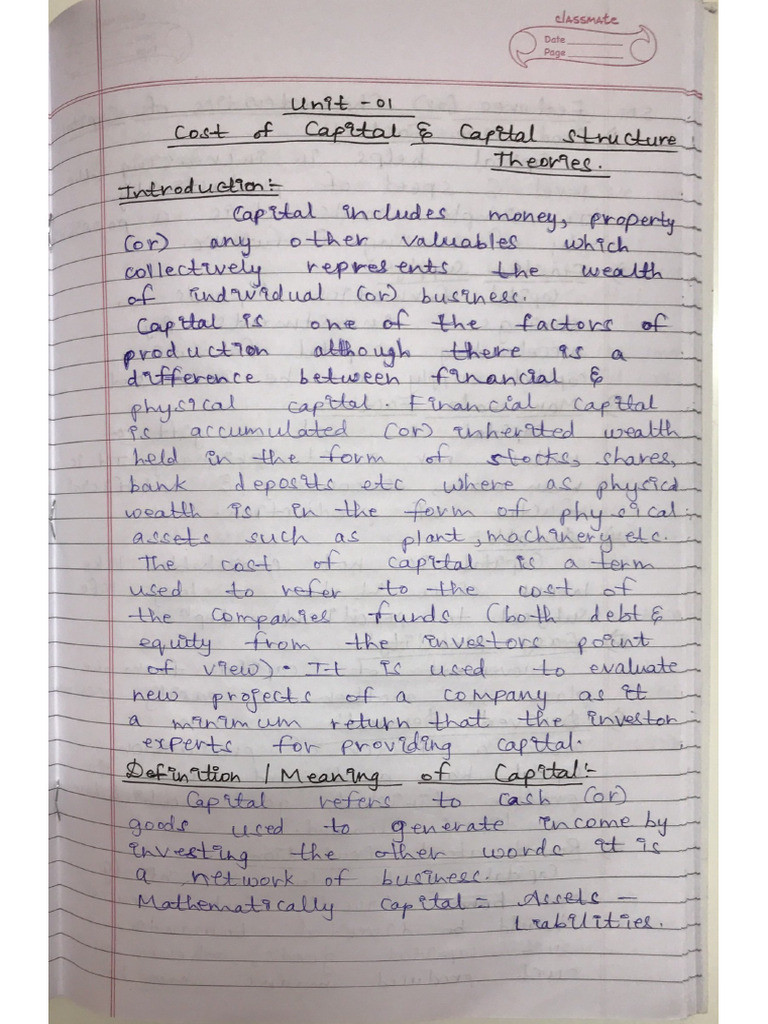 classmate
Date
Page
Unit - 01
Cost of Capital & Capital structure
Theories.
Introduction:-
Capital includes money, property
(or) any other valuables which
collectively represents the wealth
of individual (or) business.
Capital is one of the factors of
production although there is a
difference between financial &
physical capital. Financial capital
is accumulated (or) inherited wealth
held in the form of stocks, shares,
bank deposits etc where as physical
wealth is in the form of physical
assets such as plant, machinery etc.
The cost of capital is a term
used to refer to the cost of
the companies funds (both debt &
equity from the investors point
of view). It is used to evaluate
new projects of a company as it
a minimum return that the investor
experts for providing capital.
Definition / Meaning of Capital:-
Capital refers to cash (or)
goods used to generate income by
investing the other words it is
a network of business.
Mathematically capital = Assets -
Liabilities.